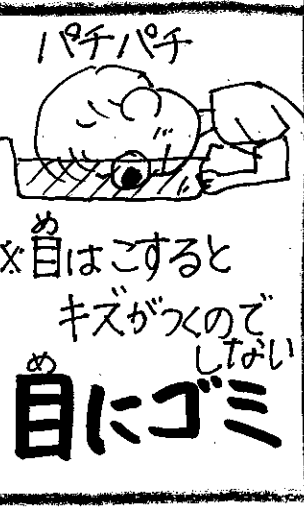 パチパチ
め
※目はこすると
キズがつくので
しない
め
目にゴミ